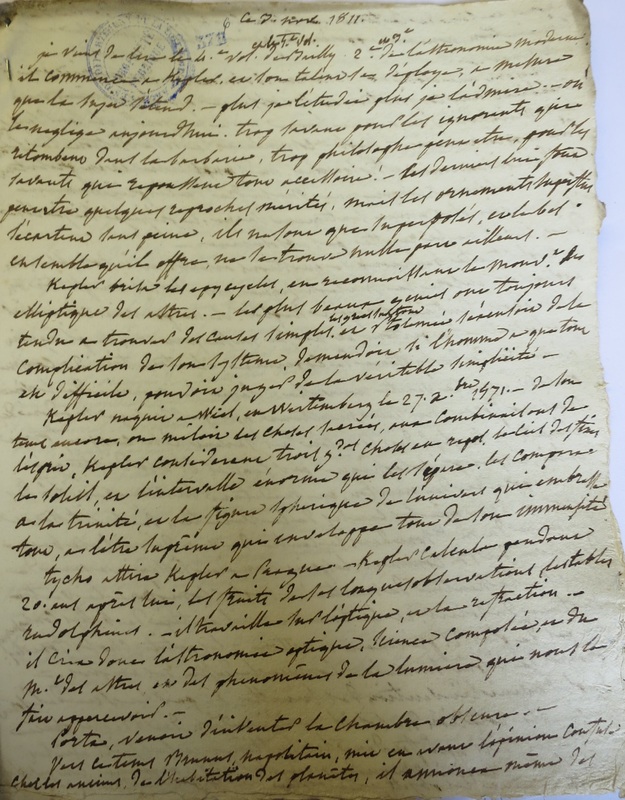 6 ce 7. 1811.
378
je viens de lire le 4.e vol. de Bailly 2.e de l'astronomie moderne
il commence à Kepler, et son talent se déploye, a mesure
que le sujet s'étend. – plus je l'étudie plus je l'admire. – on
le neglige aujourd'hui. trop savant pour les ignorants qui
retombent dans la barbarie, trop philosophe peut etre, pour les
savants qui repoussent tout accessoire. – les derniers lui font
peut etre quelques reproches merités, mais les ornements superflus
s'écartent sans peine, ils ne sont que superposés, et le bel
ensemble qu'il offre, ne se trouve nulle part ailleurs. –
Kepler brisa les epycycles, en reconnaissant le mouv.t
elliptique des astres. – les plus beaux genies ont toujours
tendu a trouver des causes simples, et Ptolemée s'étonnoit de la
complication de son systeme, demandoit si l'homme a qui tout
est difficile, pouvoit juger de la véritable simplicité –
Kepler naquit a Wiel, en Wirtemberg le 27. Xbre 1571. – de son
tems encore, on mêloit les choses sacrées, aux combinaisons de
l'esprit, Kepler considerant trois g.des choses en repos, le ciel des fixes
le soleil, et l'intervalle énorme qui les sépare, les compara
a la trinité, et la figure spherique de l'univers qui embrasse
tout, a l'être suprême qui enveloppe tout de son immensité
tycho attira Kepler a Prague – Kepler calcula pendant
20. ans après lui, les fruits de ses longues observations, les tables
rudolphines. – il travailla sur l'optique, et la refraction. –
il créa donc l'astronomie optique, science composée, et du
m.t des astres, et des phenomènes de la lumiere qui nous les
fait appercevoir. –
Porta, venoit d'inventer la chambre obscure. –
Vers ce tems Brunus, napolitain, mit en avant l'opinion
chez les anciens, de l'habitation des planètes, il annonça même des